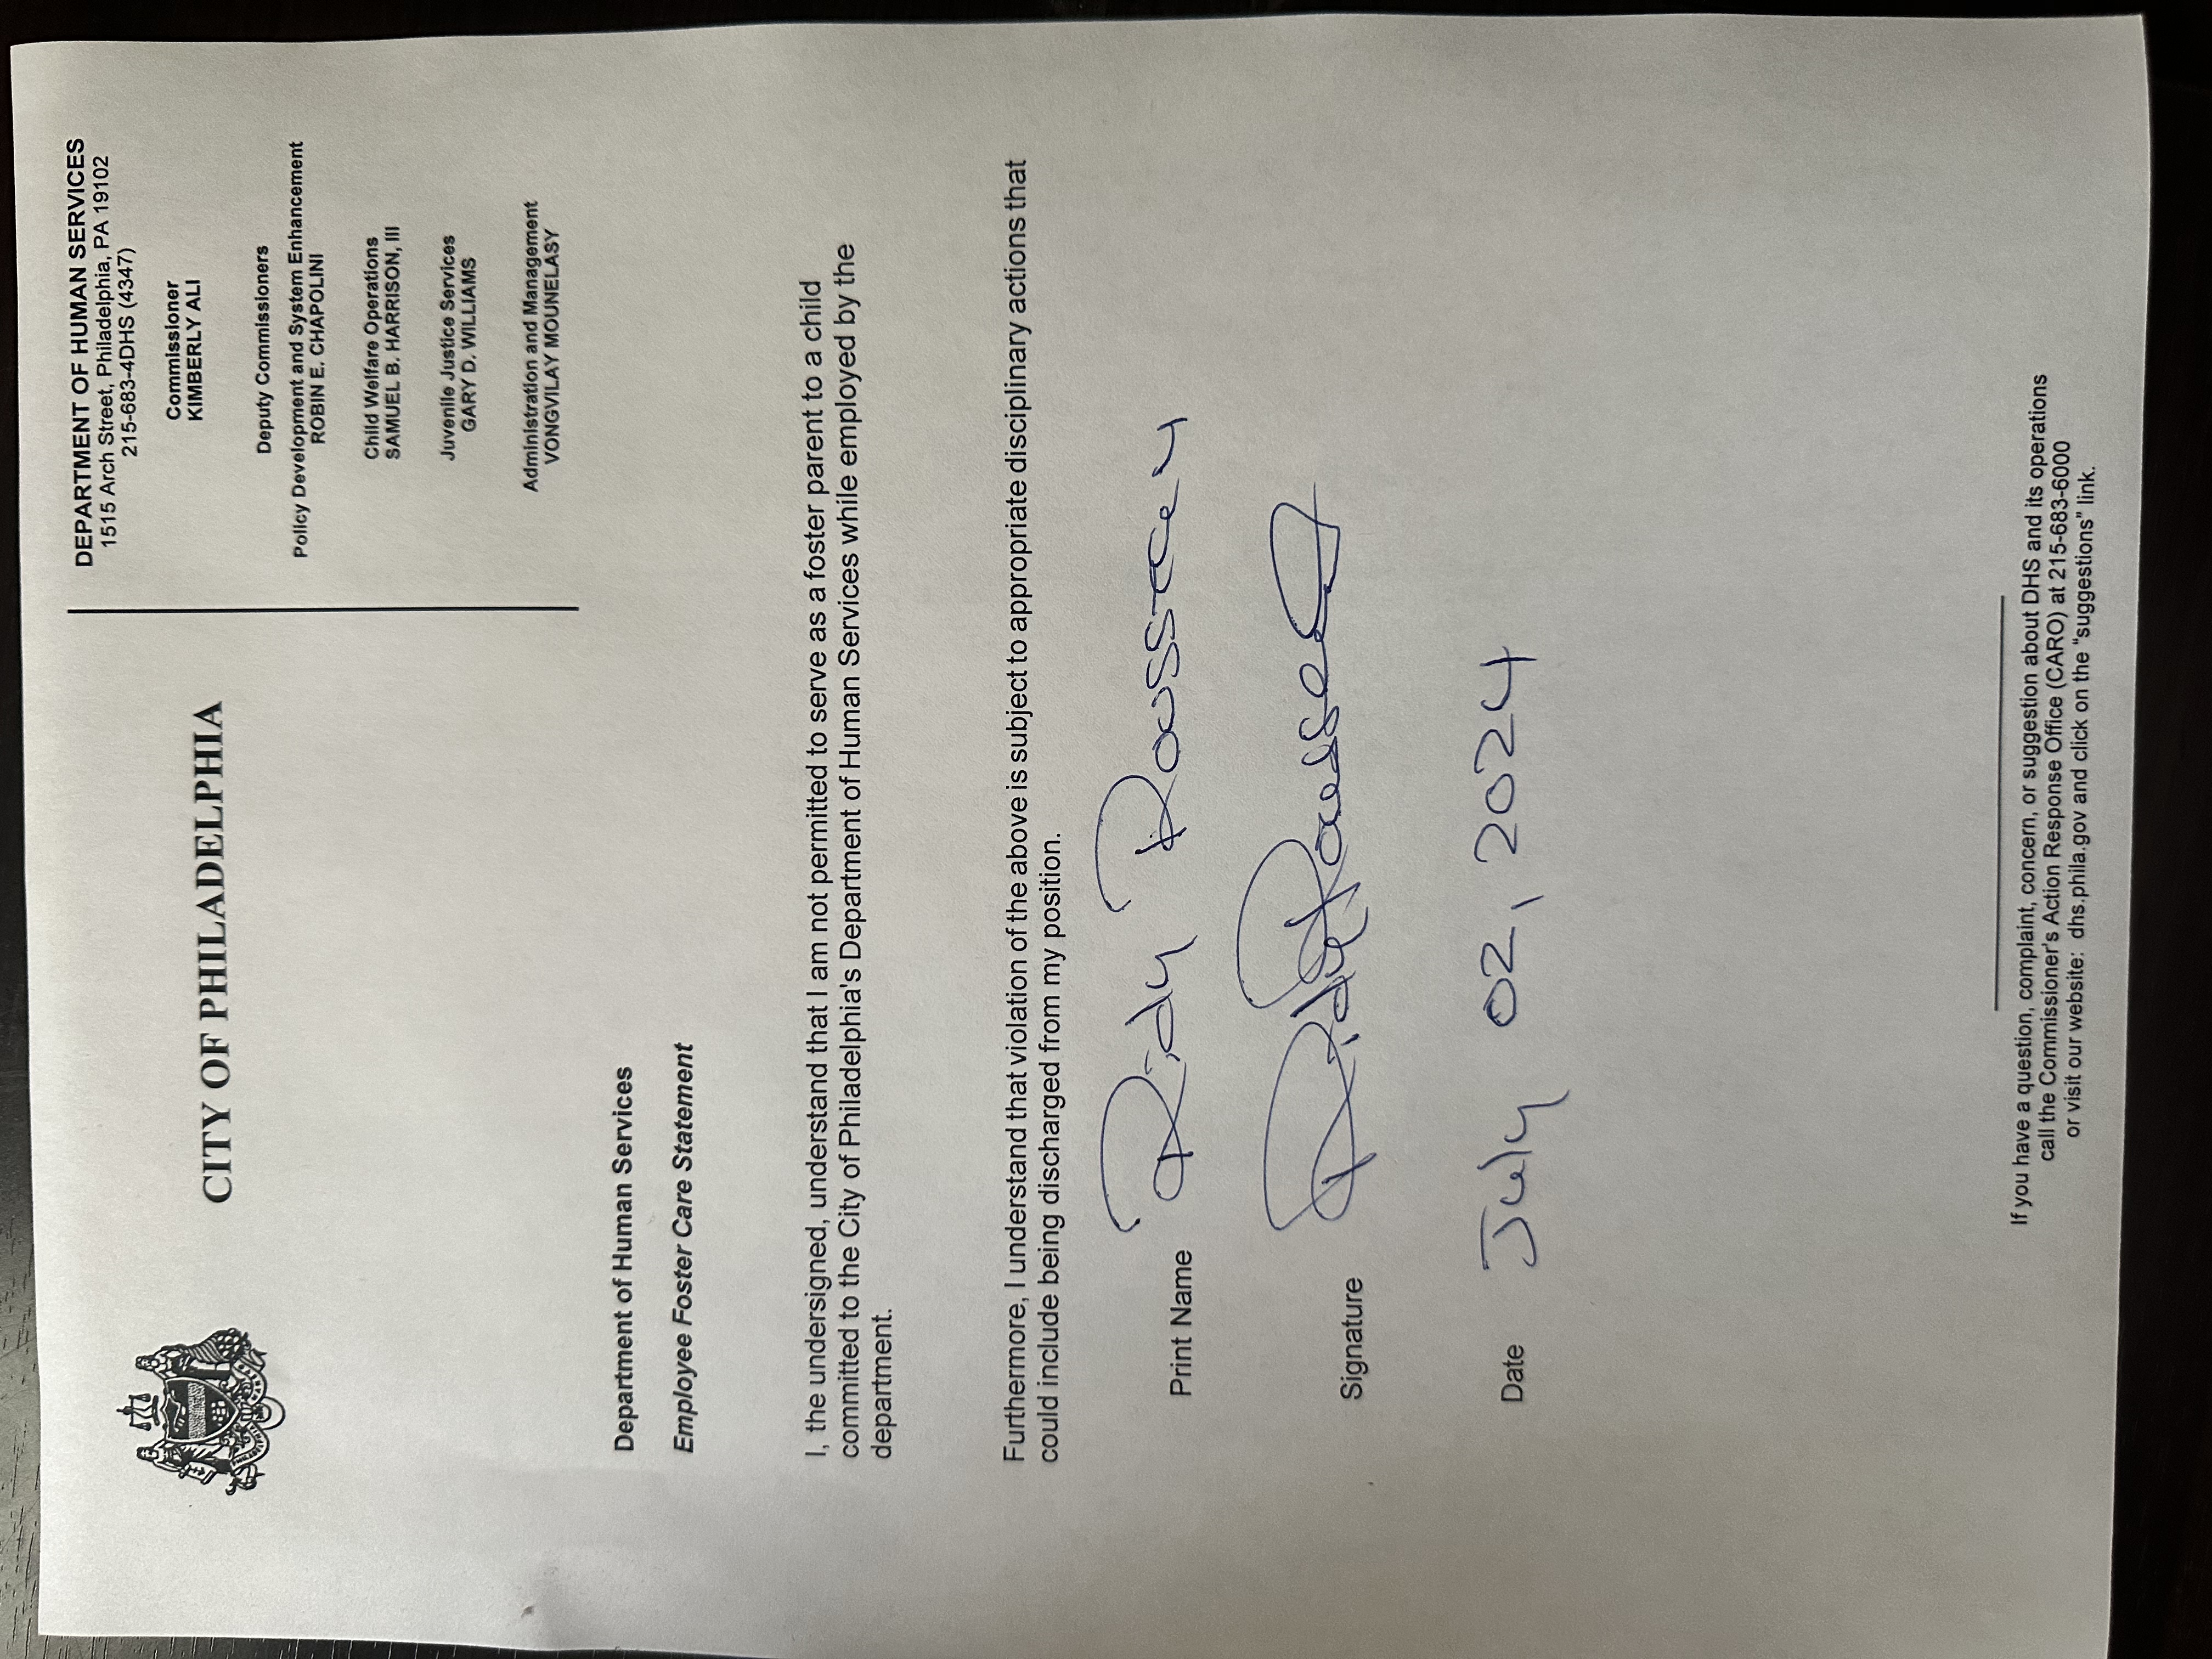 CITY OF PHILADELPHIA
DEPARTMENT OF HUMAN SERVICES
1515 Arch Street, Philadelphia, PA 19102
215-683-4DHS (4347)
Commissioner
KIMBERLY ALI
Deputy Commissioners
Policy Development and System Enhancement
ROBIN E. CHAPOLINI
Child Welfare Operations
SAMUEL B. HARRISON, III
Juvenile Justice Services
GARY D. WILLIAMS
Administration and Management
VONGVILAY MOUNELASY
Department of Human Services
Employee Foster Care Statement
I, the undersigned, understand that I am not permitted to serve as a foster parent to a child
committed to the City of Philadelphia's Department of Human Services while employed by the
department.
Furthermore, I understand that violation of the above is subject to appropriate disciplinary actions that
could include being discharged from my position.
Print Name Ridy
Signature Ridy
Date July 02, 2024
If you have a question, complaint, concern, or suggestion about DHS and its operations
call the Commissioner's Action Response Office (CARO) at 215-683-6000
or visit our website: dhs.phila.gov and click on the “suggestions” link.